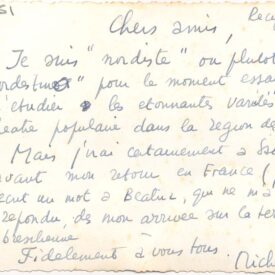 51 Reçu
Chers amis,
Je suis "nordiste" ou plutôt
pour le moment essa
étudier les étonnantes variétés
éâtre populaire dans la région de
Mais j'irai certainement à
avant mon retour en France (
écrit un mot à Beatriz, qui ne m'a
répondu, de mon arrivée sur la te
Fidèlement à vous tous.
Mich